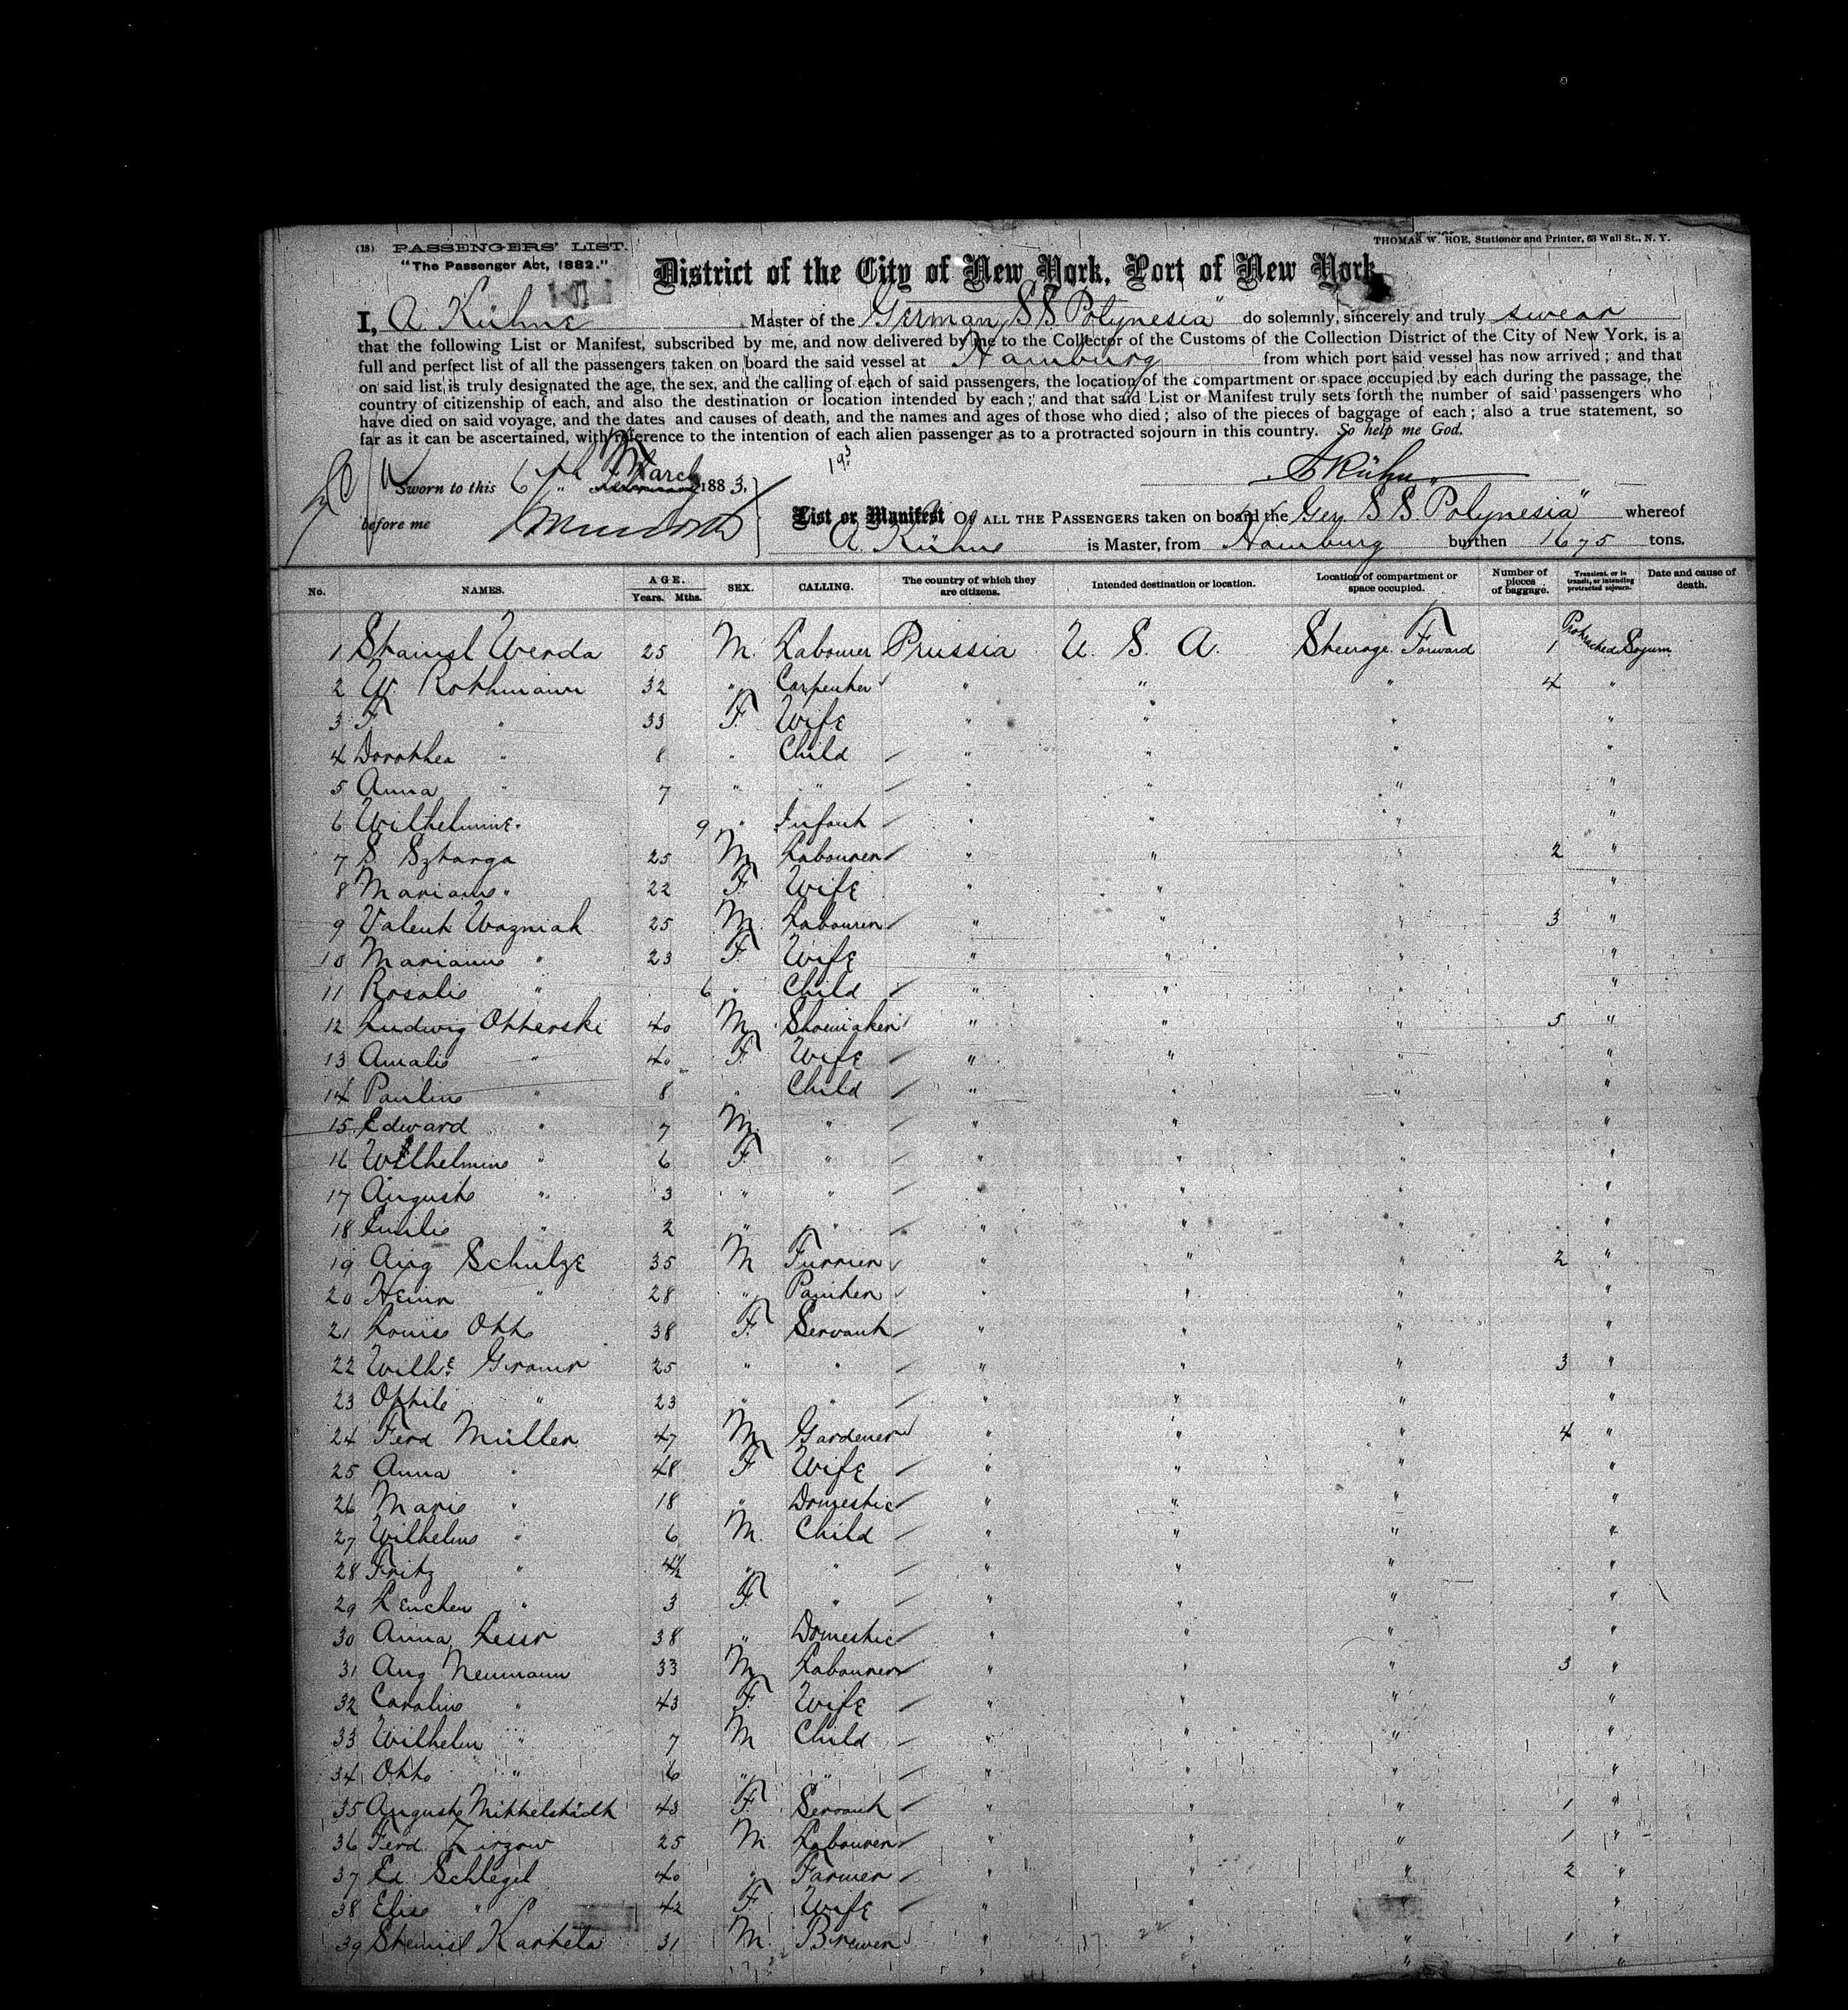 (18) PASSENGERS' LIST.
THOMAS W. ROE, Stationer and Printer, 63 Wall St., N. Y.
"The Passenger Act, 1882."
District of the City of New York, Port of New York
I, A Kühne Master of the German SS "Polynesia" do solemnly, sincerely and truly swear
that the following List or Manifest, subscribed by me, and now delivered by me to the Collector of the Customs of the Collection District of the City of New York, is a
full and perfect list of all the passengers taken on board the said vessel at Hamburg from which port said vessel has now arrived; and that
on said list is truly designated the age, the sex, and the calling of each of said passengers, the location of the compartment or space occupied by each during the passage, the
country of citizenship of each, and also the destination or location intended by each; and that said List or Manifest truly sets forth the number of said passengers who
have died on said voyage, and the dates and causes of death, and the names and ages of those who died; also of the pieces of baggage of each; also a true statement, so
far as it can be ascertained, with reference to the intention of each alien passenger as to a protracted sojourn in this country. So help me God.
Sworn to this 6th March 1883,
A Kühne
before me
List or Manifest OF ALL THE PASSENGERS taken on board the Ger. S S. Polynesia" whereof
A. Kühne is Master, from Hamburg burthen 1675 tons.
No. NAMES. AGE. Years. Mths. SEX. CALLING. The country of which they are citizens. Intended destination or location. Location of compartment or space occupied. Number of pieces of baggage. Transient, or in transit, or intending protracted sojourn. Date and cause of death.
1 Stanisl Werda 25 M. Labourer Prussia U. S. A. Steerage Forward 1 Protracted Sojourn
2 W. Rothmann 32 " Carpenter " " " 4 "
3 F " 33 F. Wife " " " "
4 Dorothea " 8 " Child " " " "
5 Anna " 7 " " " " " "
6 Wilhelmine " 9 " Infant " " " "
7 S. Sztarga 25 M Labourer " " " 2 "
8 Marianne " 22 F Wife " " " "
9 Valent Wozniak 25 M. Labourer " " " 3 "
10 Marianne " 23 F. Wife " " " "
11 Rosalie " 6 " Child " " " "
12 Ludwig Otterski 40 M Shoemaker " " " 5 "
13 Amalie " 40 F. Wife " " " "
14 Pauline " 8 " Child " " " "
15 Edward " 7 M. " " " " "
16 Wilhelmine " 6 F " " " " "
17 Auguste " 3 " " " " " "
18 Emilie " 2 " " " " " "
19 Aug Schulze 35 M Furrier " " " 2 "
20 Heinr " 28 " Painter " " " "
21 Louise Otto 38 F. Servant " " " "
22 Wilhe. Gramr 25 " " " " " 3 "
23 Ottilie " 23 " " " " " "
24 Ferd Müller 47 M Gardener " " " 4 "
25 Anna " 48 F Wife " " " "
26 Marie " 18 " Domestic " " " "
27 Wilhelm " 6 M. Child " " " "
28 Fritz " 4½ " " " " " "
29 Lenchen " 3 F. " " " " "
30 Anna Lessr 38 " Domestic " " " "
31 Aug Neumann 33 M Labourer " " " 3 "
32 Caroline " 43 F. Wife " " " "
33 Wilhelm " 7 M Child " " " "
34 Otto " 6 " " " " " "
35 Auguste Mittelstädt 43 F. Servant " " " 1 "
36 Ferd. Zirzow 25 M Labourer " " " 1 "
37 Ed Schlegel 40 " Farmer " " " 2 "
38 Elise " 42 F. Wife " " " "
39 Stanisl Kartela 31 M. Brewer " " " 1 "